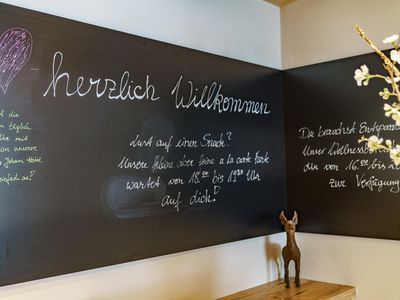 herzlich Willkommen
Lust auf einen Snack?
Unsere kleine aber feine a la carte Karte
wartet von 18 00 bis 19 30 Uhr
auf dich!
die
täglich
mit
an unserer
Johann
einfach an!
Du brauchst
Unser
dir von 16 00 bis
zur Verfügung